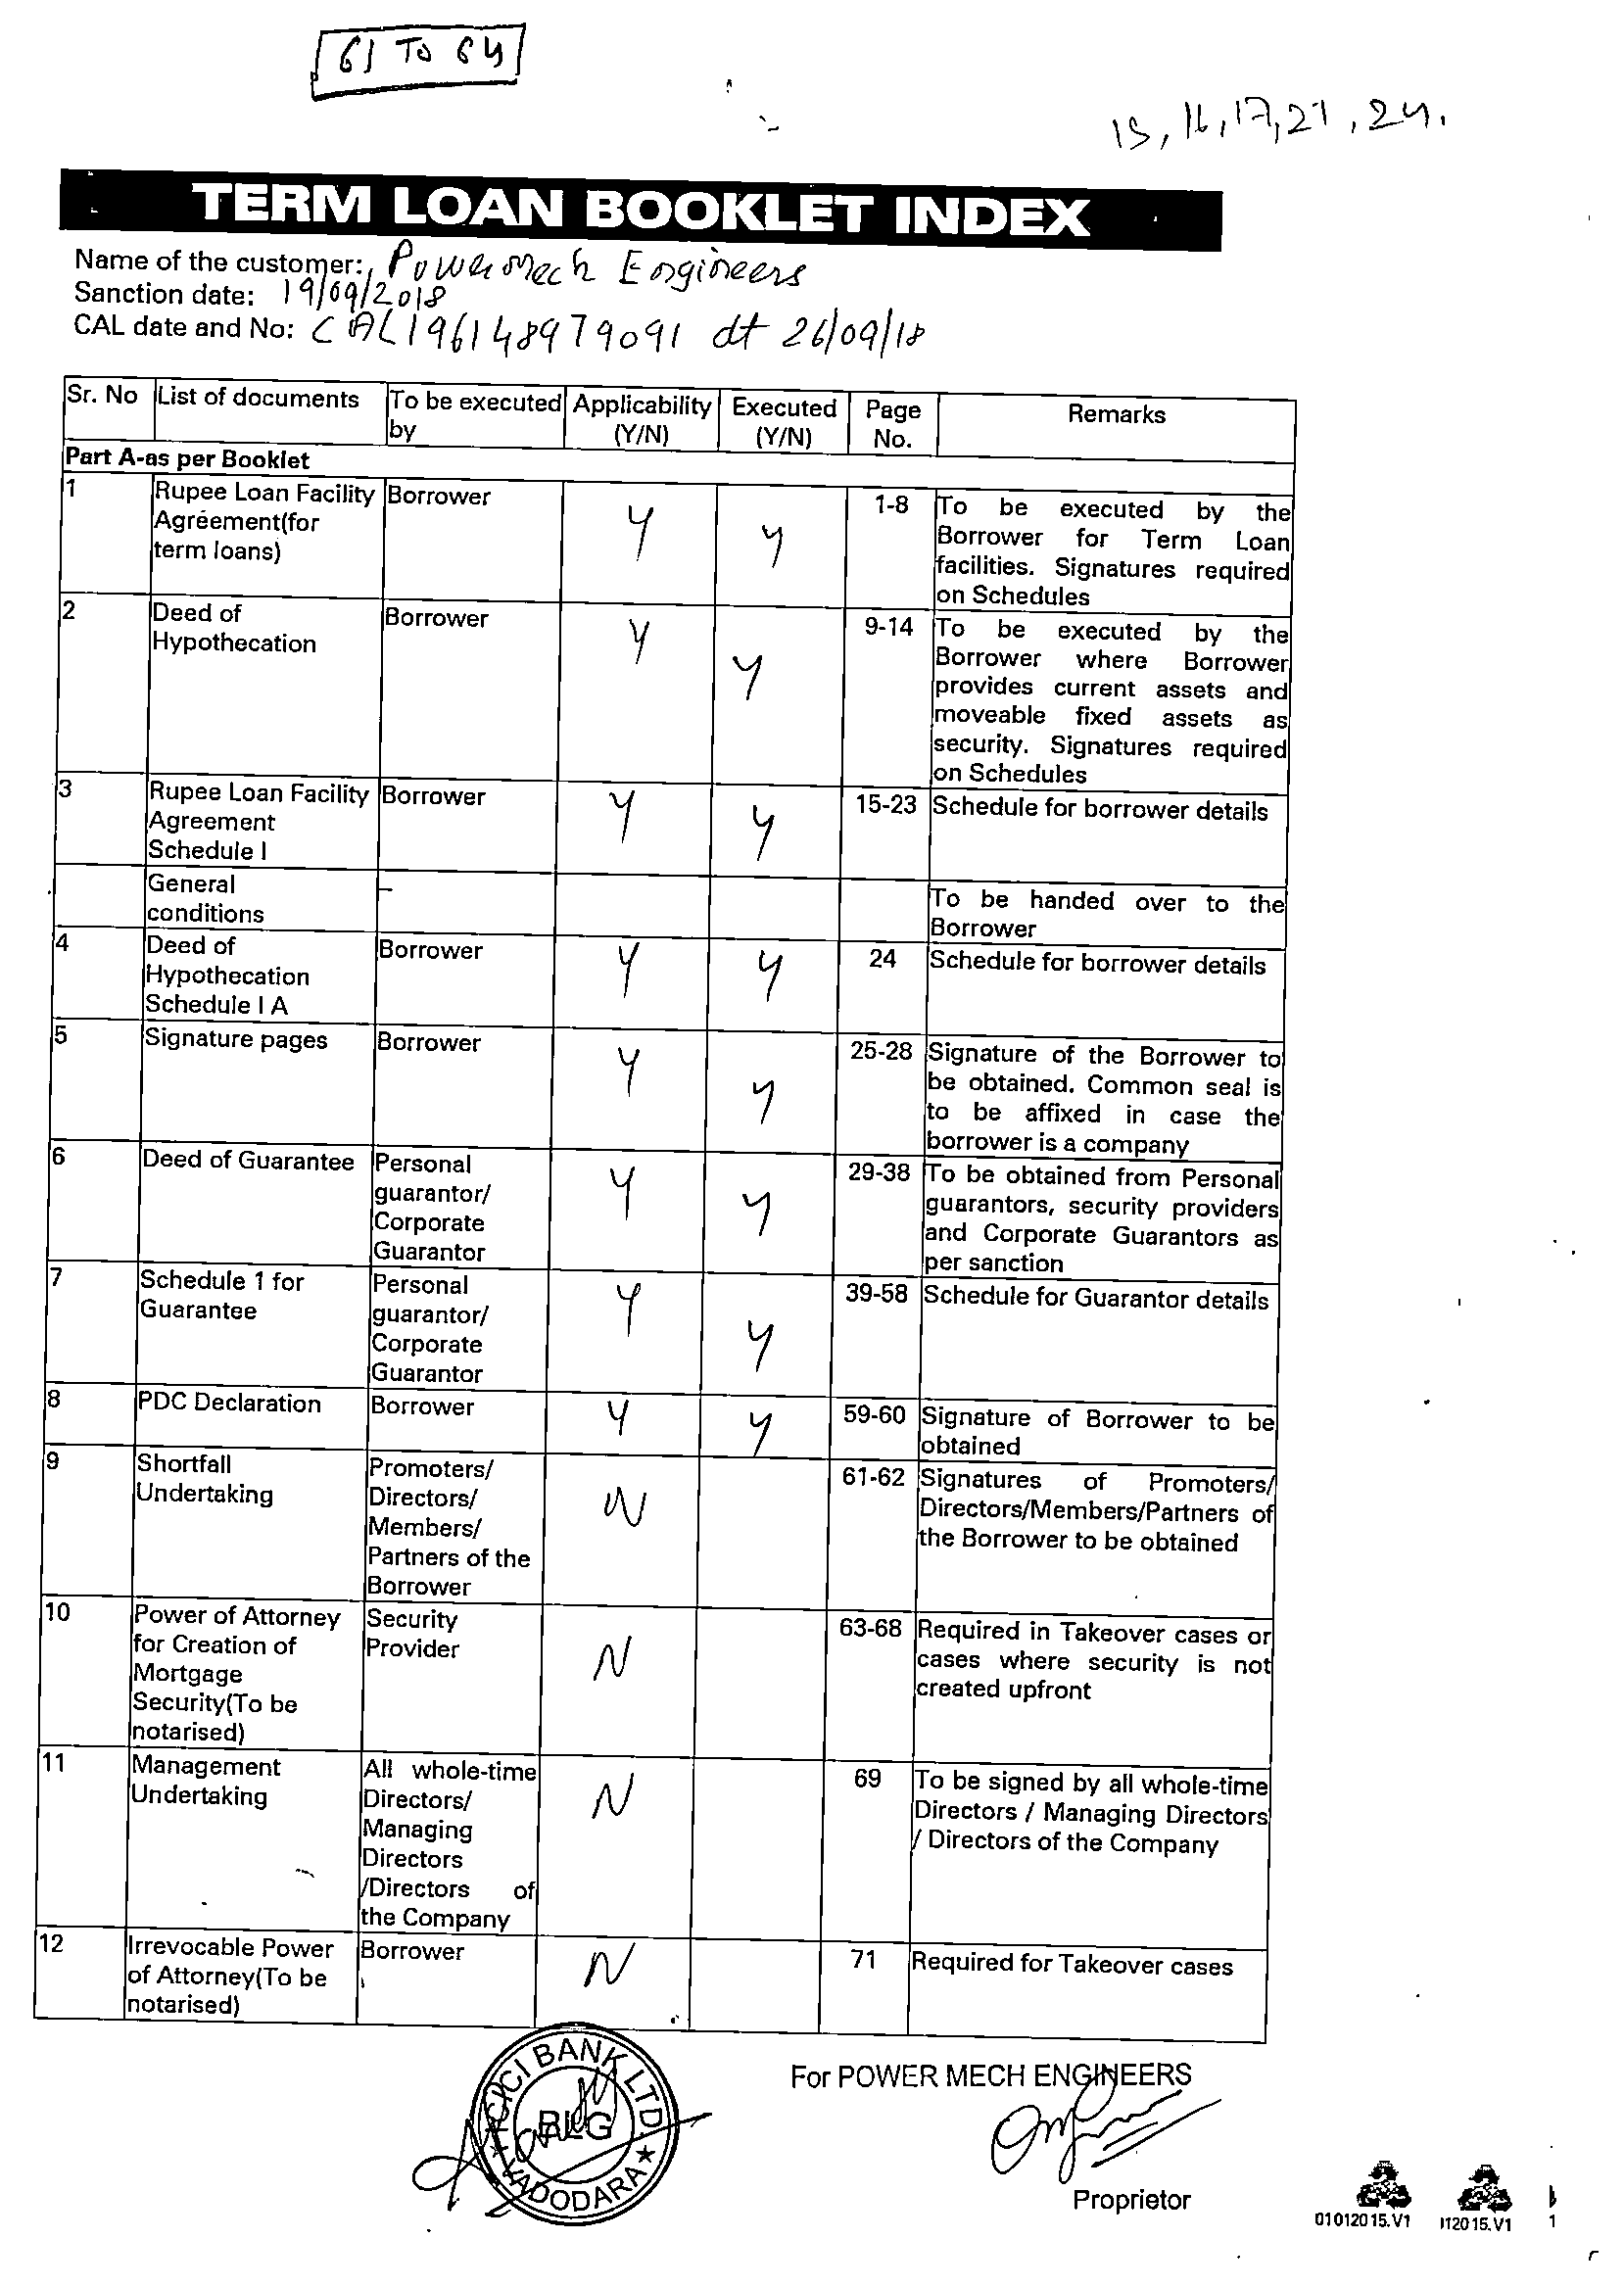 61 TO 64
15, 16, 17, 21, 24.
TERM LOAN BOOKLET INDEX
Name of the customer: PowerMech Engineers
Sanction date: 19/09/2018
CAL date and No: CAL196148979091 dt 26/09/18
Sr. No List of documents To be executed by Applicability (Y/N) Executed (Y/N) Page No. Remarks
Part A-as per Booklet
1 Rupee Loan Facility Agreement(for term loans) Borrower Y Y 1-8 To be executed by the Borrower for Term Loan facilities. Signatures required on Schedules
2 Deed of Hypothecation Borrower Y Y 9-14 To be executed by the Borrower where Borrower provides current assets and moveable fixed assets as security. Signatures required on Schedules
3 Rupee Loan Facility Agreement Schedule I Borrower Y Y 15-23 Schedule for borrower details
General conditions – To be handed over to the Borrower
4 Deed of Hypothecation Schedule I A Borrower Y Y 24 Schedule for borrower details
5 Signature pages Borrower Y Y 25-28 Signature of the Borrower to be obtained. Common seal is to be affixed in case the borrower is a company
6 Deed of Guarantee Personal guarantor/ Corporate Guarantor Y Y 29-38 To be obtained from Personal guarantors, security providers and Corporate Guarantors as per sanction
7 Schedule 1 for Guarantee Personal guarantor/ Corporate Guarantor Y Y 39-58 Schedule for Guarantor details
8 PDC Declaration Borrower Y Y 59-60 Signature of Borrower to be obtained
9 Shortfall Undertaking Promoters/ Directors/ Members/ Partners of the Borrower N 61-62 Signatures of Promoters/ Directors/Members/Partners of the Borrower to be obtained
10 Power of Attorney for Creation of Mortgage Security(To be notarised) Security Provider N 63-68 Required in Takeover cases or cases where security is not created upfront
11 Management Undertaking All whole-time Directors/ Managing Directors /Directors of the Company N 69 To be signed by all whole-time Directors / Managing Directors / Directors of the Company
12 Irrevocable Power of Attorney(To be notarised) Borrower N 71 Required for Takeover cases
ICICI BANK LTD.
RLG
★ VADODARA ★
For POWER MECH ENGINEERS
Proprietor
01012015.V1
112015.V1
1